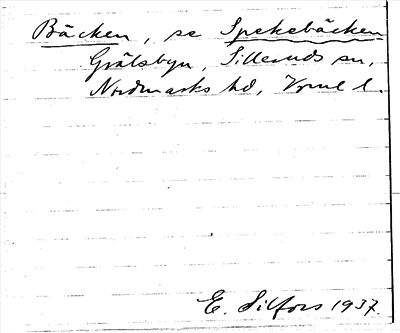 Bäcken, se Spekebäcken
Grålsbyn, Silleruds sn,
Nordmarks hd, Vrml l.
E. Silfors 1937.